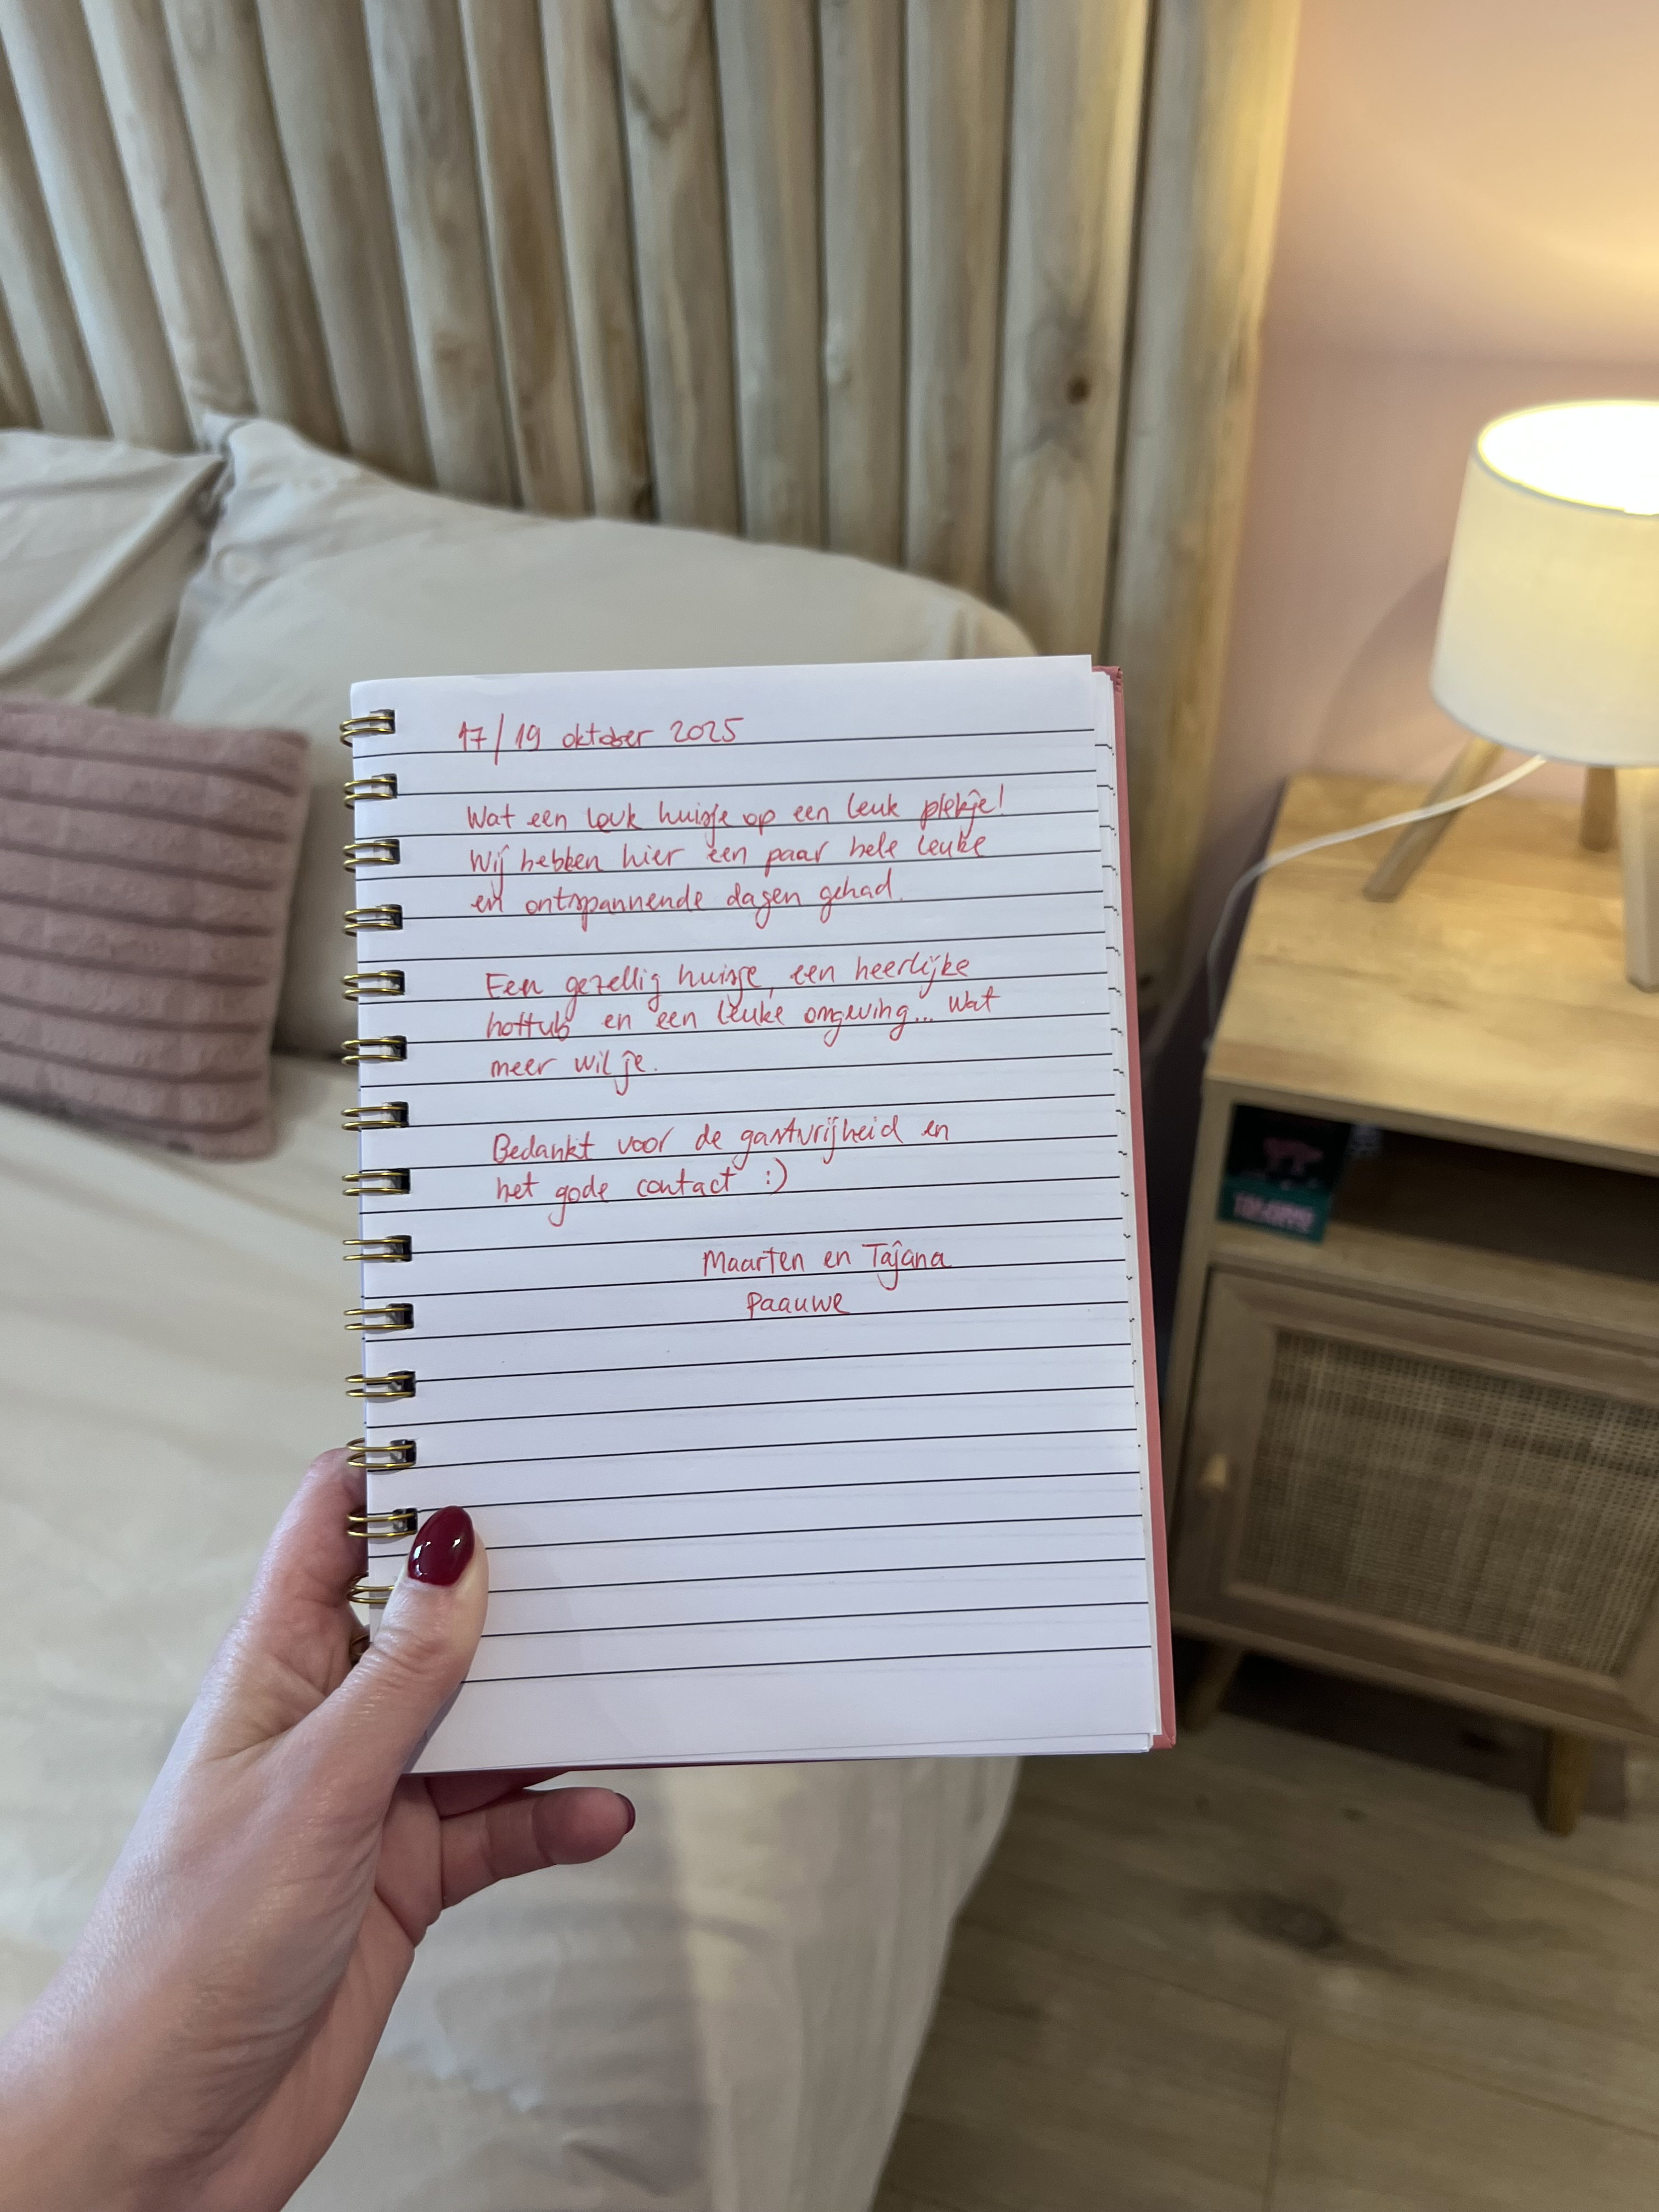 17/19 oktober 2025
Wat een leuk huisje op een leuk plekje!
Wij hebben hier een paar hele leuke
en ontspannende dagen gehad.
Een gezellig huisje, een heerlijke
hottub en een leuke omgeving... wat
meer wil je.
Bedankt voor de gastvrijheid en
het gode contact :)
Maarten en Tajana
Paauwe